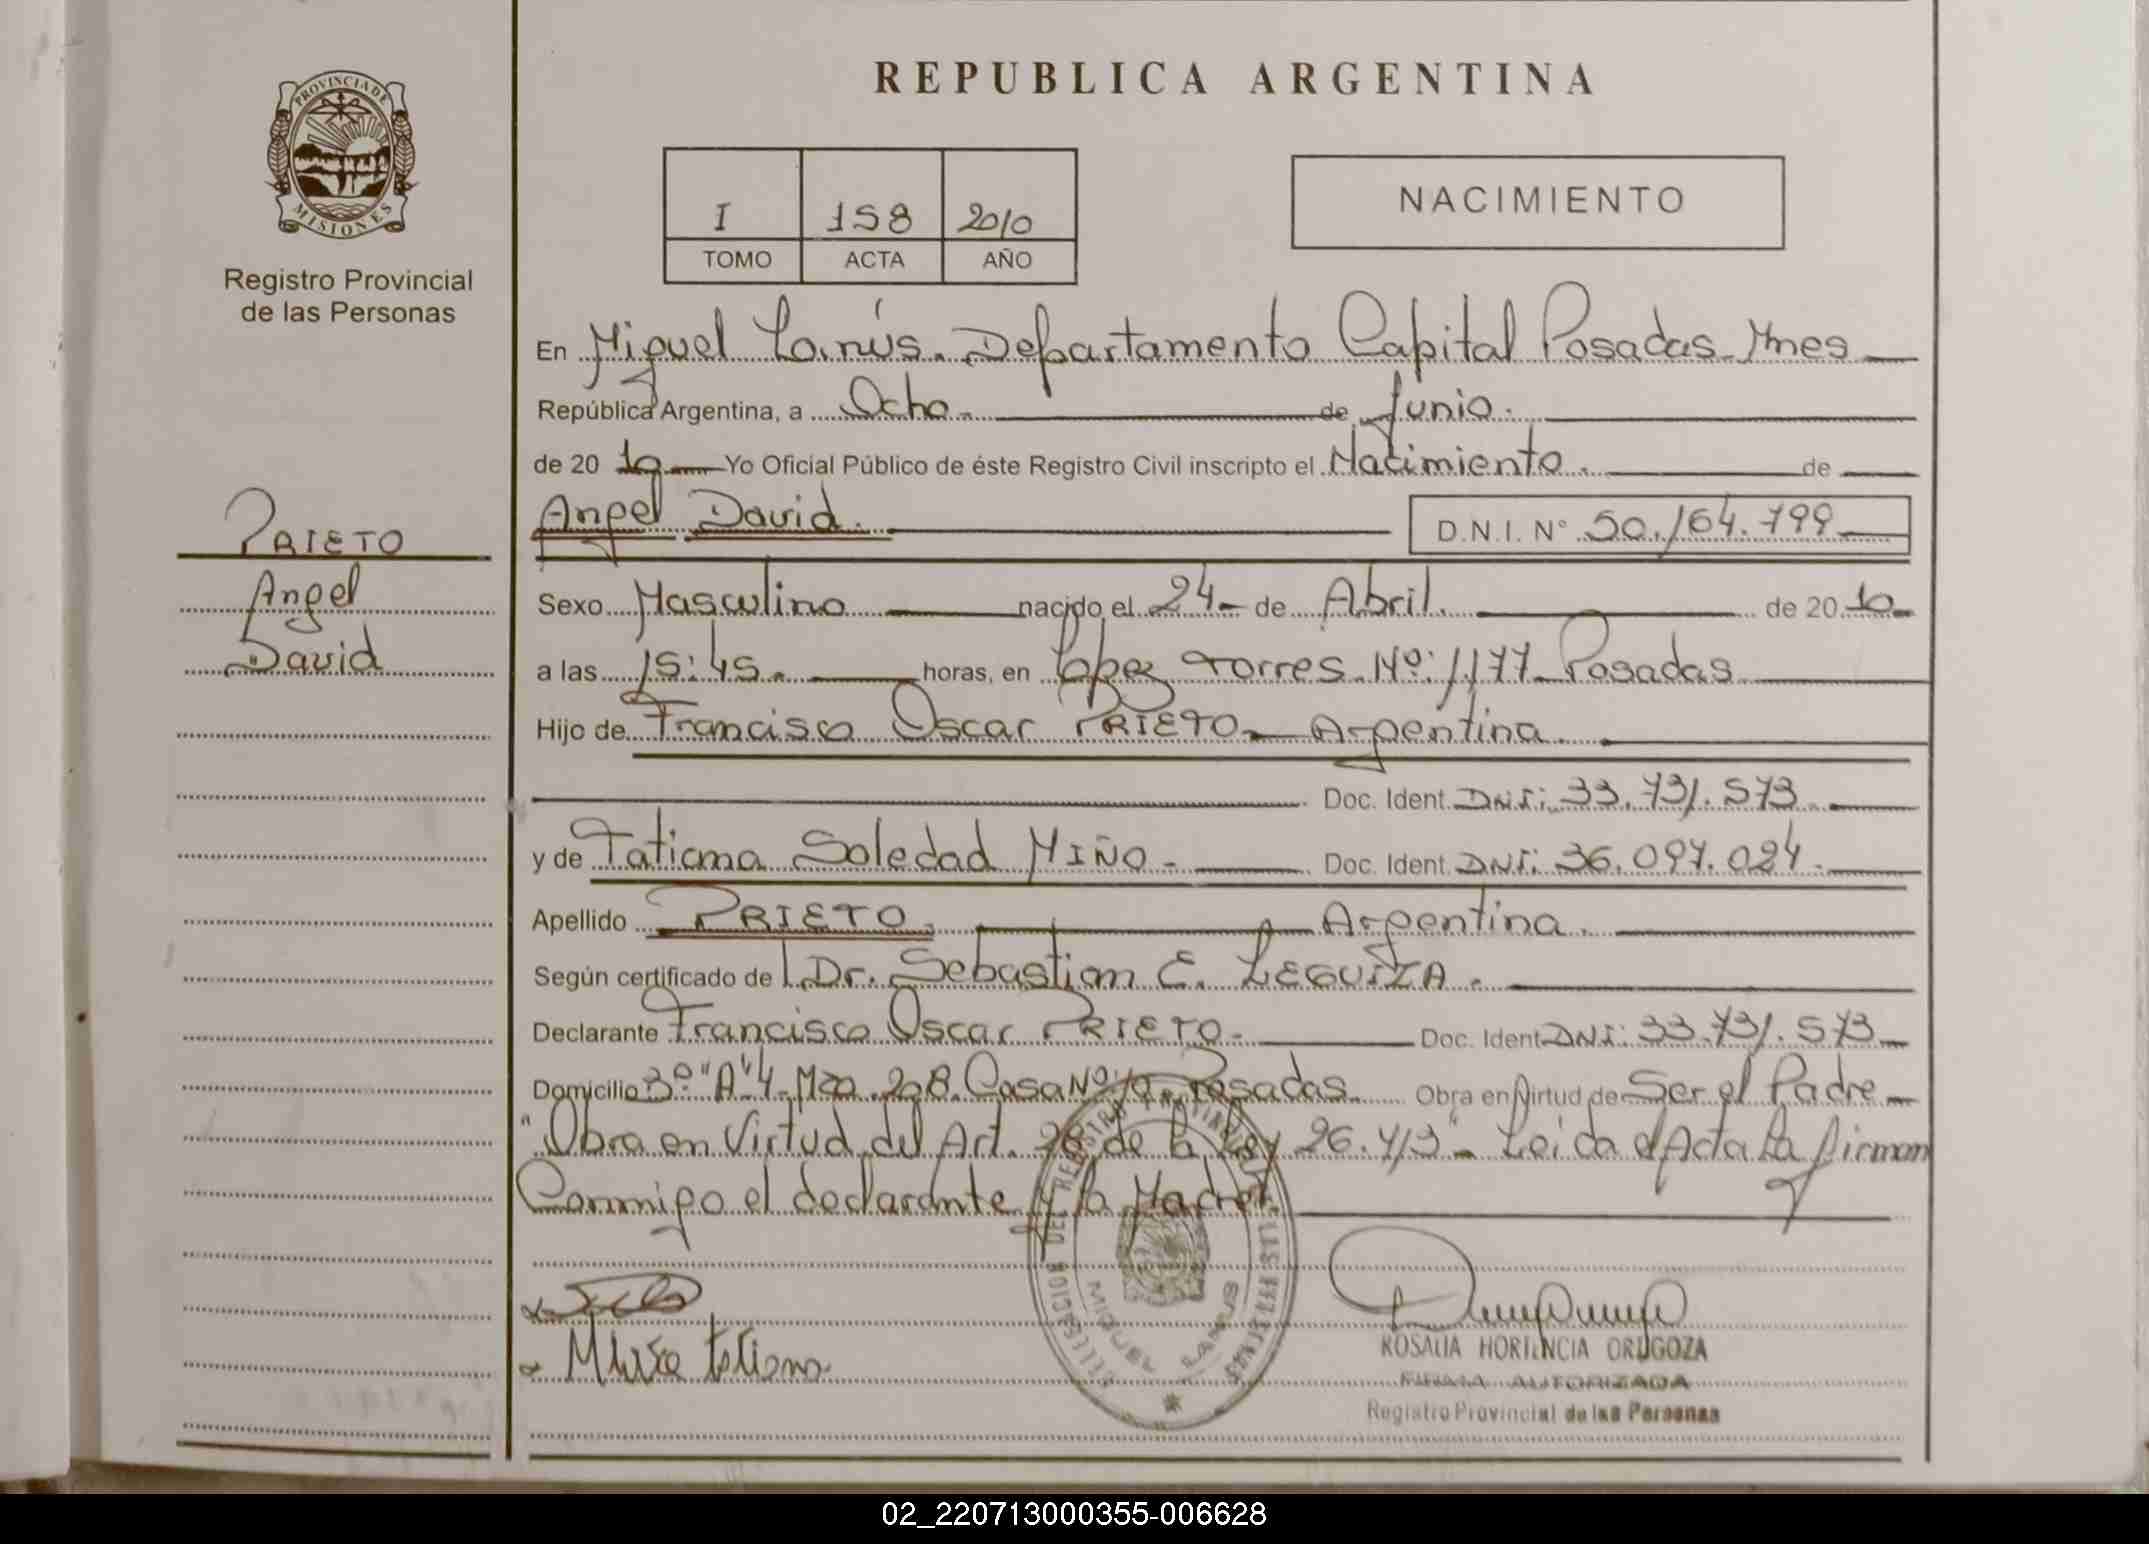 REPUBLICA ARGENTINA
PROVINCIA DE
MISIONES
Registro Provincial
de las Personas
I 158 2010
TOMO ACTA AÑO
NACIMIENTO
En Miguel Lanús. Departamento Capital Posadas Mnes
República Argentina, a Ocho. de Junio.
de 20 10 Yo Oficial Público de éste Registro Civil inscripto el Nacimiento. de
Angel David. D.N.I. N° 50.164.799
PRIETO
Angel
David
Sexo Masculino nacido el 24 de Abril. de 20 10
a las 15:45. horas, en López Torres Nº: 1177 Posadas
Hijo de Francisco Oscar PRIETO Argentina.
Doc. Ident. DNI: 33.731.573
y de Tatiana Soledad MIÑO. Doc. Ident. DNI: 36.097.024.
Apellido PRIETO. Argentina.
Según certificado de Dr. Sebastian E. LEGUIZA.
Declarante Francisco Oscar PRIETO. Doc. Ident DNI: 33.731.573
Domicilio 3º "A" 4 Mza 208. Casa Nº Posadas. Obra en Virtud de Ser el Padre
"Obra en Virtud del Art. de la Ley 26.413" Leida el Acta La firman
Conmigo el declarante y la Madre.
DELEGACION DEL REGISTRO PROVINCIAL
MIGUEL LANUS
ROSALIA HORTENCIA ORUGOZA
FIRMA AUTORIZADA
Registro Provincial de las Personas
02_220713000355-006628